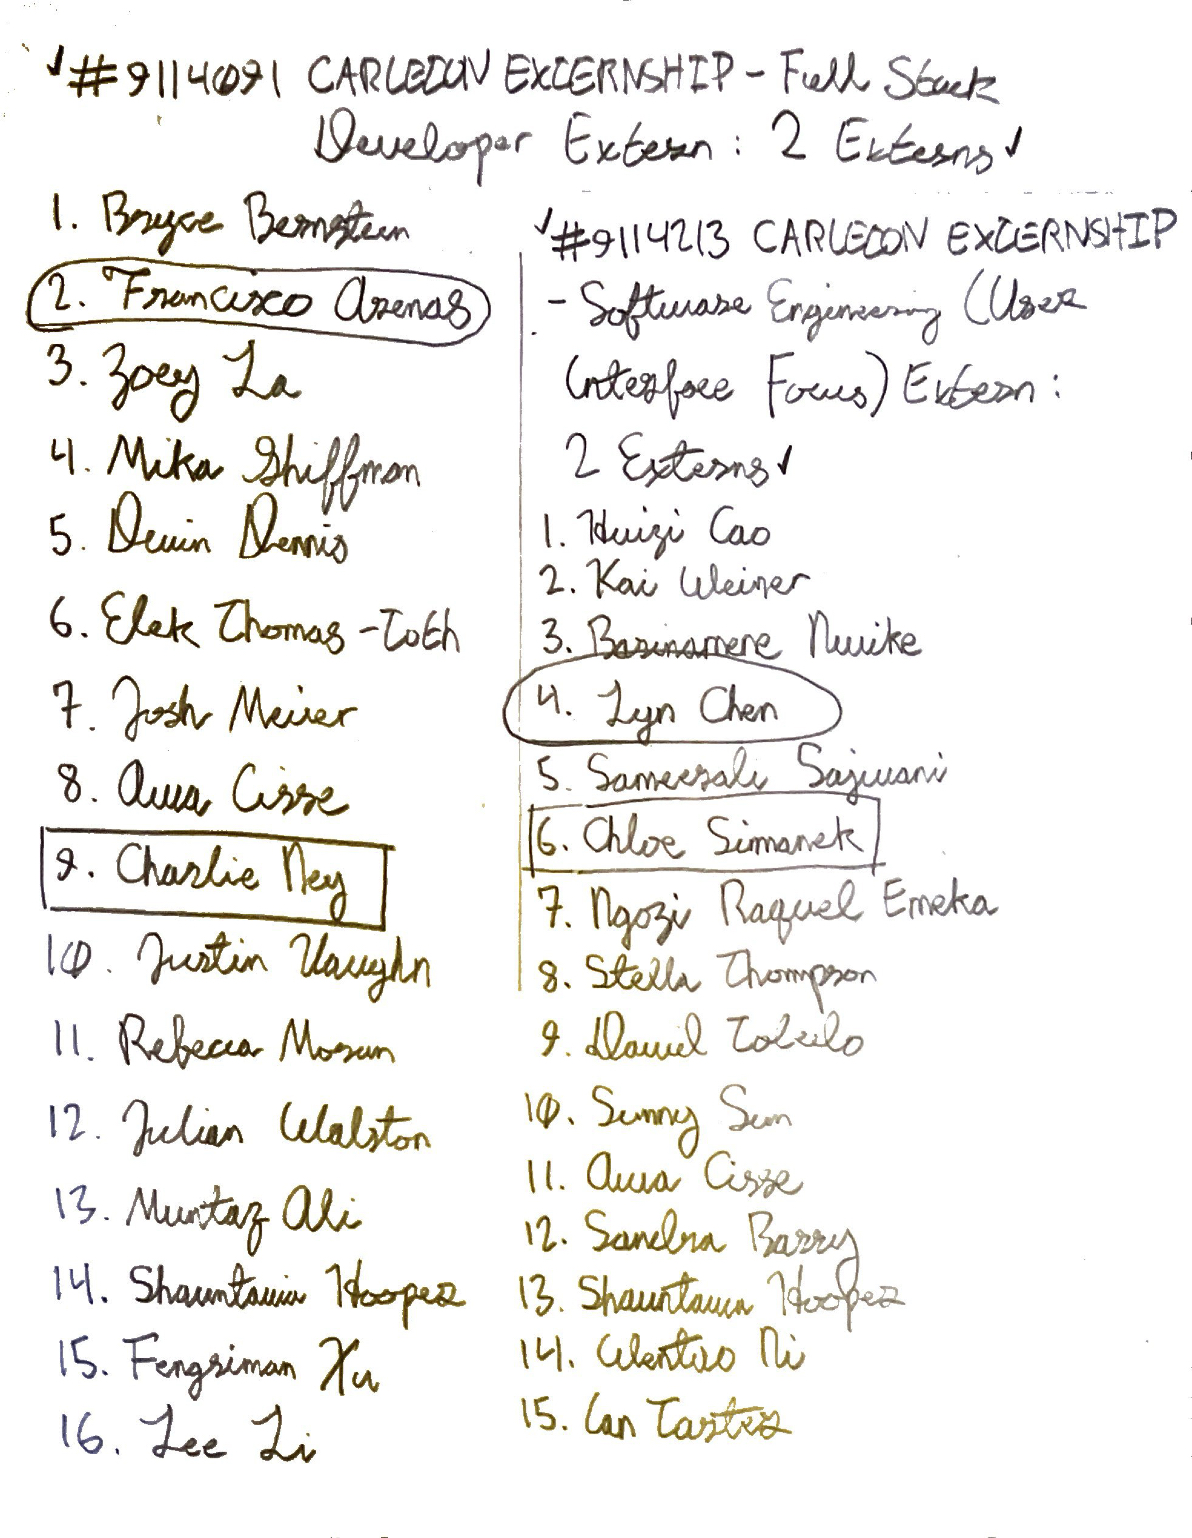 ✓#9114091 CARLETON EXTERNSHIP - Full Stack
Developer Extern : 2 Externs ✓
1. Bryce Bernstein
2. Francisco Arenas
3. Zoey La
4. Mika Shiffman
5. Devin Dennis
6. Elek Thomas-Toth
7. Josh Meier
8. Awa Cisse
9. Charlie Ney
10. Justin Vaughn
11. Rebecca Moran
12. Julian Walston
13. Muntaz Ali
14. Shauntawia Hooper
15. Fengsiman Xu
16. Lee Li
✓#9114213 CARLETON EXTERNSHIP
- Software Engineering (User
Interface Focus) Extern :
2 Externs ✓
1. Huizi Cao
2. Kai Weiner
3. Barinamene Nwike
4. Lyn Chen
5. Sameerali Sajwani
6. Chloe Simanek
7. Ngozi Raquel Emeka
8. Stella Thompson
9. Daniel Toledo
10. Sunny Sun
11. Awa Cisse
12. Sandra Barry
13. Shauntawia Hooper
14. Wentao Ni
15. Ian Tartez